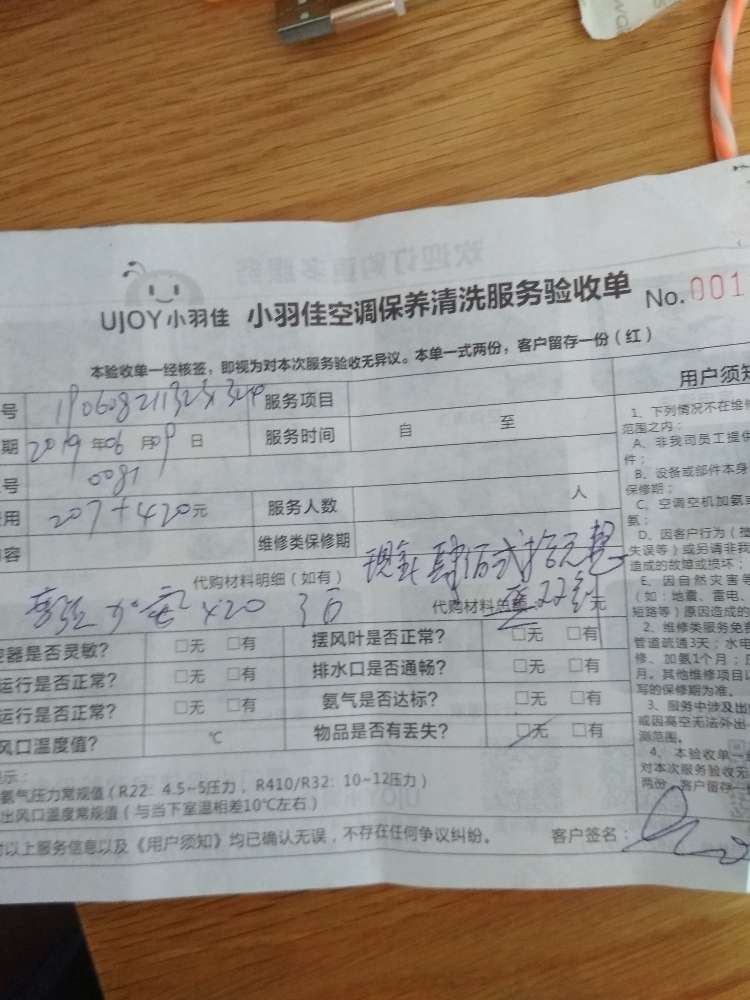 UJOY小羽佳 小羽佳空调保养清洗服务验收单 No.001
本验收单一经核签，即视为对本次服务验收无异议。本单一式两份，客户留存一份（红）
号 服务项目 用户须知
期 2019年06月09日 服务时间 自 至
号 0081
用 207+420元 服务人数 人
内容 维修类保修期
现金肆佰贰拾元整
代购材料明细（如有） 代购材料 元
器是否灵敏？ □无 □有 摆风叶是否正常？ □无 □有
运行是否正常？ □无 □有 排水口是否通畅？ □无 □有
运行是否正常？ □无 □有 氨气是否达标？ □无 □有
风口温度值？ ℃ 物品是否有丢失？ □无 □有
示：
氨气压力常规值（R22：4.5~5压力，R410/R32：10~12压力）
出风口温度常规值（与当下室温相差10℃左右）
对以上服务信息以及《用户须知》均已确认无误，不存在任何争议纠纷。 客户签名：
1、下列情况不在维修
范围之内：
A、非我司员工提供
件；
B、设备或部件本身
保修期；
C、空调空机加氨或
氨；
D、因客户行为（擅
失误等）或另请非我
造成的故障或损坏；
E、因自然灾害等
（如：地震、雷电、
短路等）原因造成的
2、维修类服务免费
管道疏通3天；水电
修、加氨1个月；
月。其他维修项目以
写的保修期为准。
3、服务中涉及出
或因高空无法外出
测范围。
4、本验收单一
对本次服务验收无
两份，客户留存一